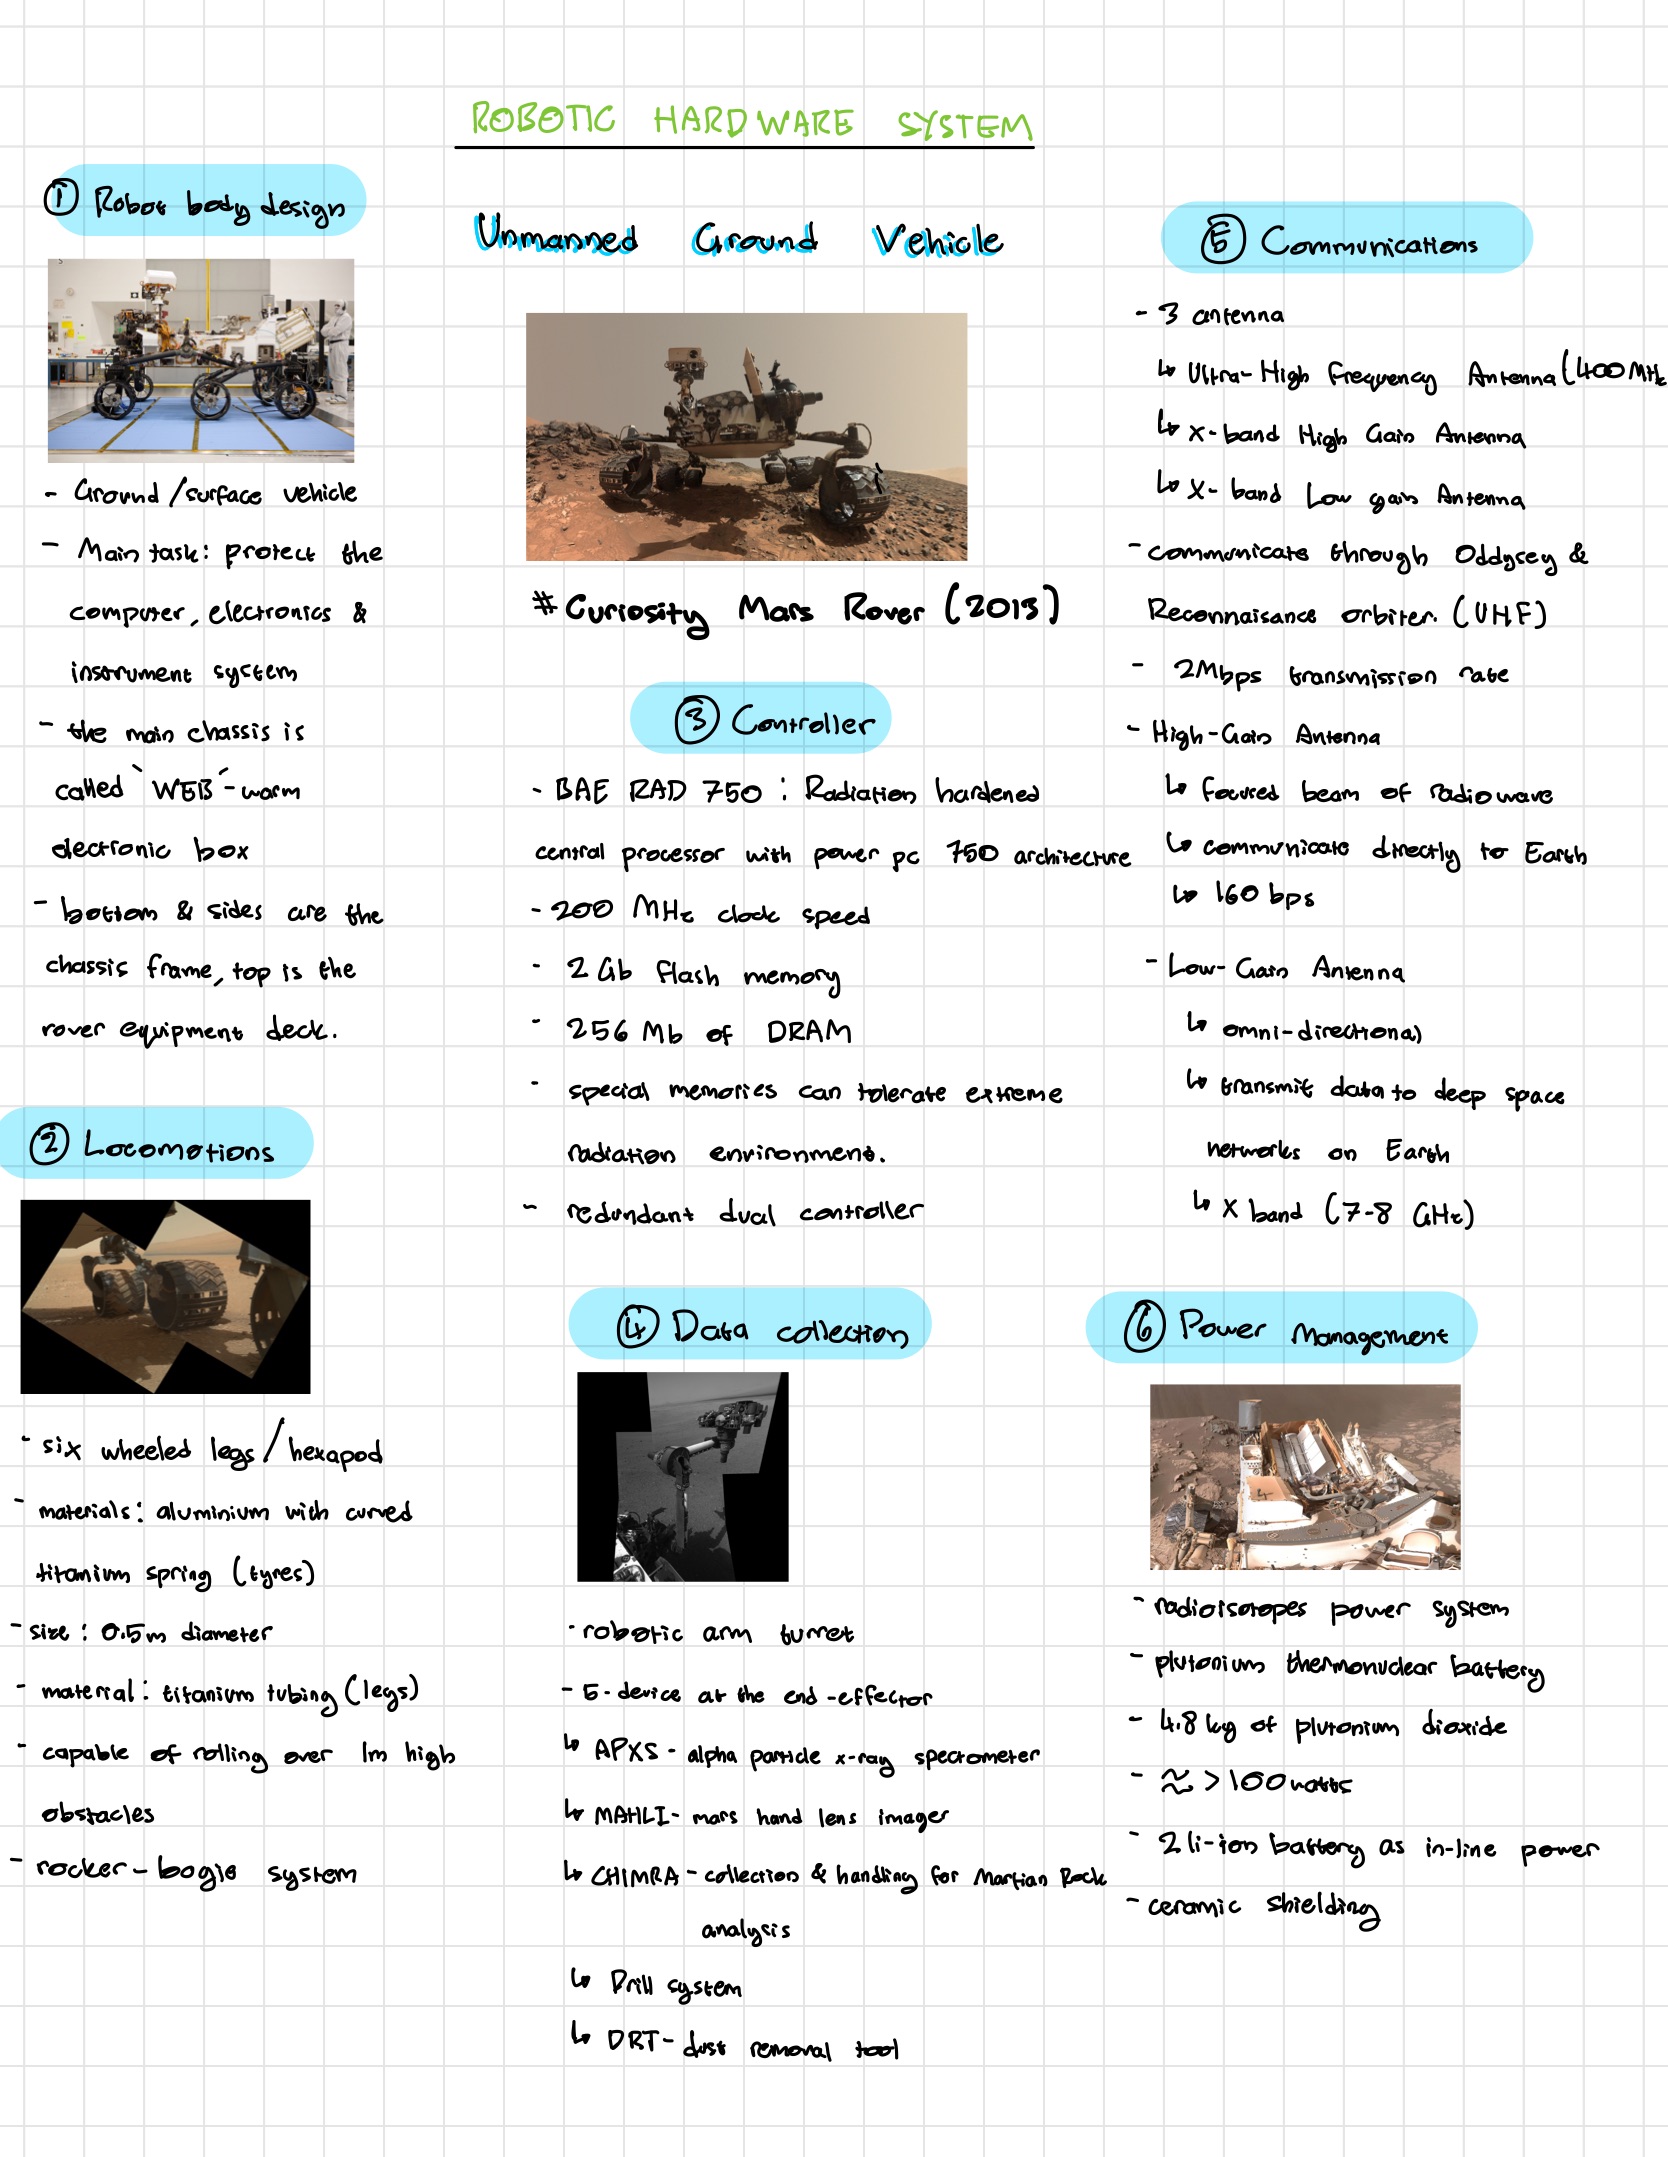 ROBOTIC HARDWARE SYSTEM
① Robot body design
- Ground/surface vehicle
- Main task: protect the
computer, electronics &
instrument system
- the main chassis is
called `WEB´-warm
electronic box
- bottom & sides are the
chassis frame, top is the
rover equipment deck.
② Locomotions
- six wheeled legs/hexapod
- materials: aluminium with curved
titanium spring (tyres)
- size: 0.5m diameter
- material: titanium tubing (legs)
- capable of rolling over 1m high
obstacles
- rocker-bogie system
Unmanned Ground Vehicle
# Curiosity Mars Rover (2013)
③ Controller
- BAE RAD 750 : Radiation hardened
central processor with power pc 750 architecture
- 200 MHz clock speed
- 2 Gb flash memory
- 256 Mb of DRAM
- special memories can tolerate extreme
radiation environment.
- redundant dual controller
④ Data collection
- robotic arm turret
- 5-device at the end-effector
↳ APXS - alpha particle x-ray spectrometer
↳ MAHLI - mars hand lens imager
↳ CHIMRA - collection & handling for Martian Rock
analysis
↳ Drill system
↳ DRT - dust removal tool
⑤ Communications
- 3 antenna
↳ Ultra-High Frequency Antenna (400MHz
↳ X-band High Gain Antenna
↳ X-band Low gain Antenna
- communicate through Oddysey &
Reconnaisance orbiter. (UHF)
- 2Mbps transmission rate
- High-Gain Antenna
↳ focused beam of radiowave
↳ communicate directly to Earth
↳ 160 bps
- Low-Gain Antenna
↳ omni-directional
↳ transmit data to deep space
networks on Earth
↳ X band (7-8 GHz)
⑥ Power Management
- radioisotopes power system
- plutonium thermonuclear battery
- 4.8 kg of plutonium dioxide
- ≈ >100 watts
- 2 li-ion battery as in-line power
- ceramic shielding